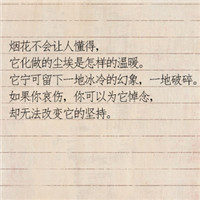 烟花不会让人懂得，
它化做的尘埃是怎样的温暖。
它宁可留下一地冰冷的幻象，一地破碎。
如果你哀伤，你可以为它悼念，
却无法改变它的坚持。